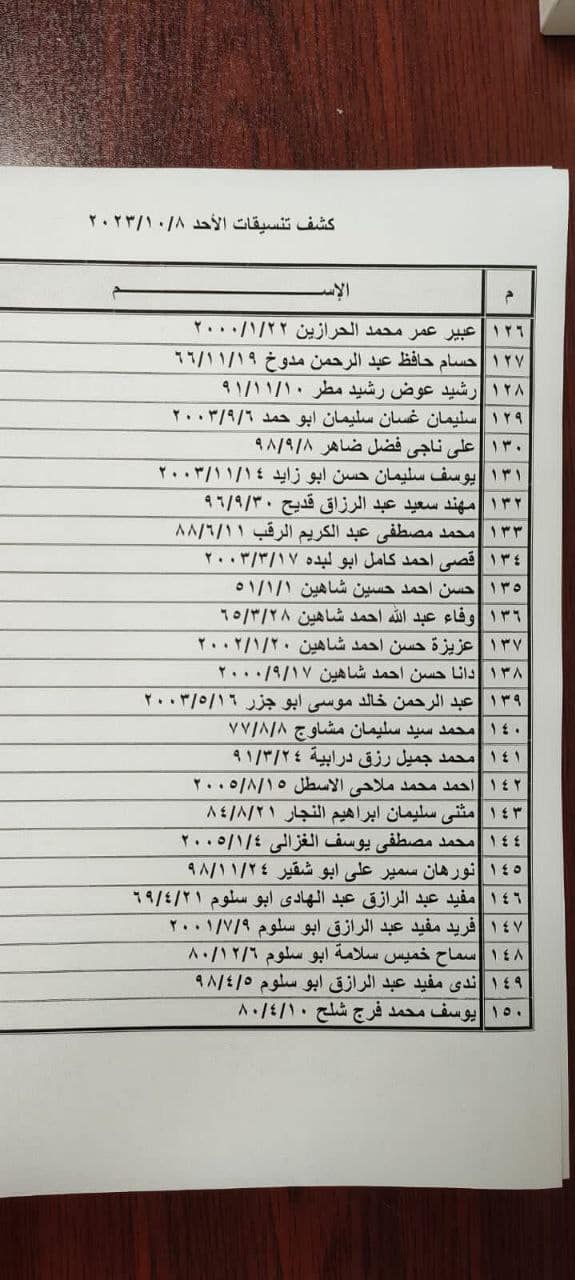 كشف تنسيقات الأحد ٢٠٢٣/١٠/٨
م الإســـــــــــــــــم
١٢٦ عبير عمر محمد الحرازين ٢٠٠٠/١/٢٢
١٢٧ حسام حافظ عبد الرحمن مدوخ ٦٦/١١/١٩
١٢٨ رشيد عوض رشيد مطر ٩١/١١/١٠
١٢٩ سليمان غسان سليمان ابو حمد ٢٠٠٣/٩/٦
١٣٠ على ناجى فضل ضاهر ٩٨/٩/٨
١٣١ يوسف سليمان حسن ابو زايد ٢٠٠٣/١١/١٤
١٣٢ مهند سعيد عبد الرزاق قديح ٩٦/٩/٣٠
١٣٣ محمد مصطفى عبد الكريم الرقب ٨٨/٦/١١
١٣٤ قصى احمد كامل ابو لبده ٢٠٠٣/٣/١٧
١٣٥ حسن احمد حسين شاهين ٥١/١/١
١٣٦ وفاء عبد الله احمد شاهين ٦٥/٣/٢٨
١٣٧ عزيزة حسن احمد شاهين ٢٠٠٢/١/٢٠
١٣٨ دانا حسن احمد شاهين ٢٠٠٠/٩/١٧
١٣٩ عبد الرحمن خالد موسى ابو جزر ٢٠٠٣/٥/١٦
١٤٠ محمد سيد سليمان مشاوج ٧٧/٨/٨
١٤١ محمد جميل رزق درابية ٩١/٣/٢٤
١٤٢ احمد محمد ملاحى الاسطل ٢٠٠٥/٨/١٥
١٤٣ مثنى سليمان ابراهيم النجار ٨٤/٨/٢١
١٤٤ محمد مصطفى يوسف الغزالى ٢٠٠٥/١/٤
١٤٥ نورهان سمير على ابو شقير ٩٨/١١/٢٤
١٤٦ مفيد عبد الرازق عبد الهادى ابو سلوم ٦٩/٤/٢١
١٤٧ فريد مفيد عبد الرازق ابو سلوم ٢٠٠١/٧/٩
١٤٨ سماح خميس سلامة ابو سلوم ٨٠/١٢/٦
١٤٩ ندى مفيد عبد الرازق ابو سلوم ٩٨/٤/٥
١٥٠ يوسف محمد فرج شلح ٨٠/٤/١٠